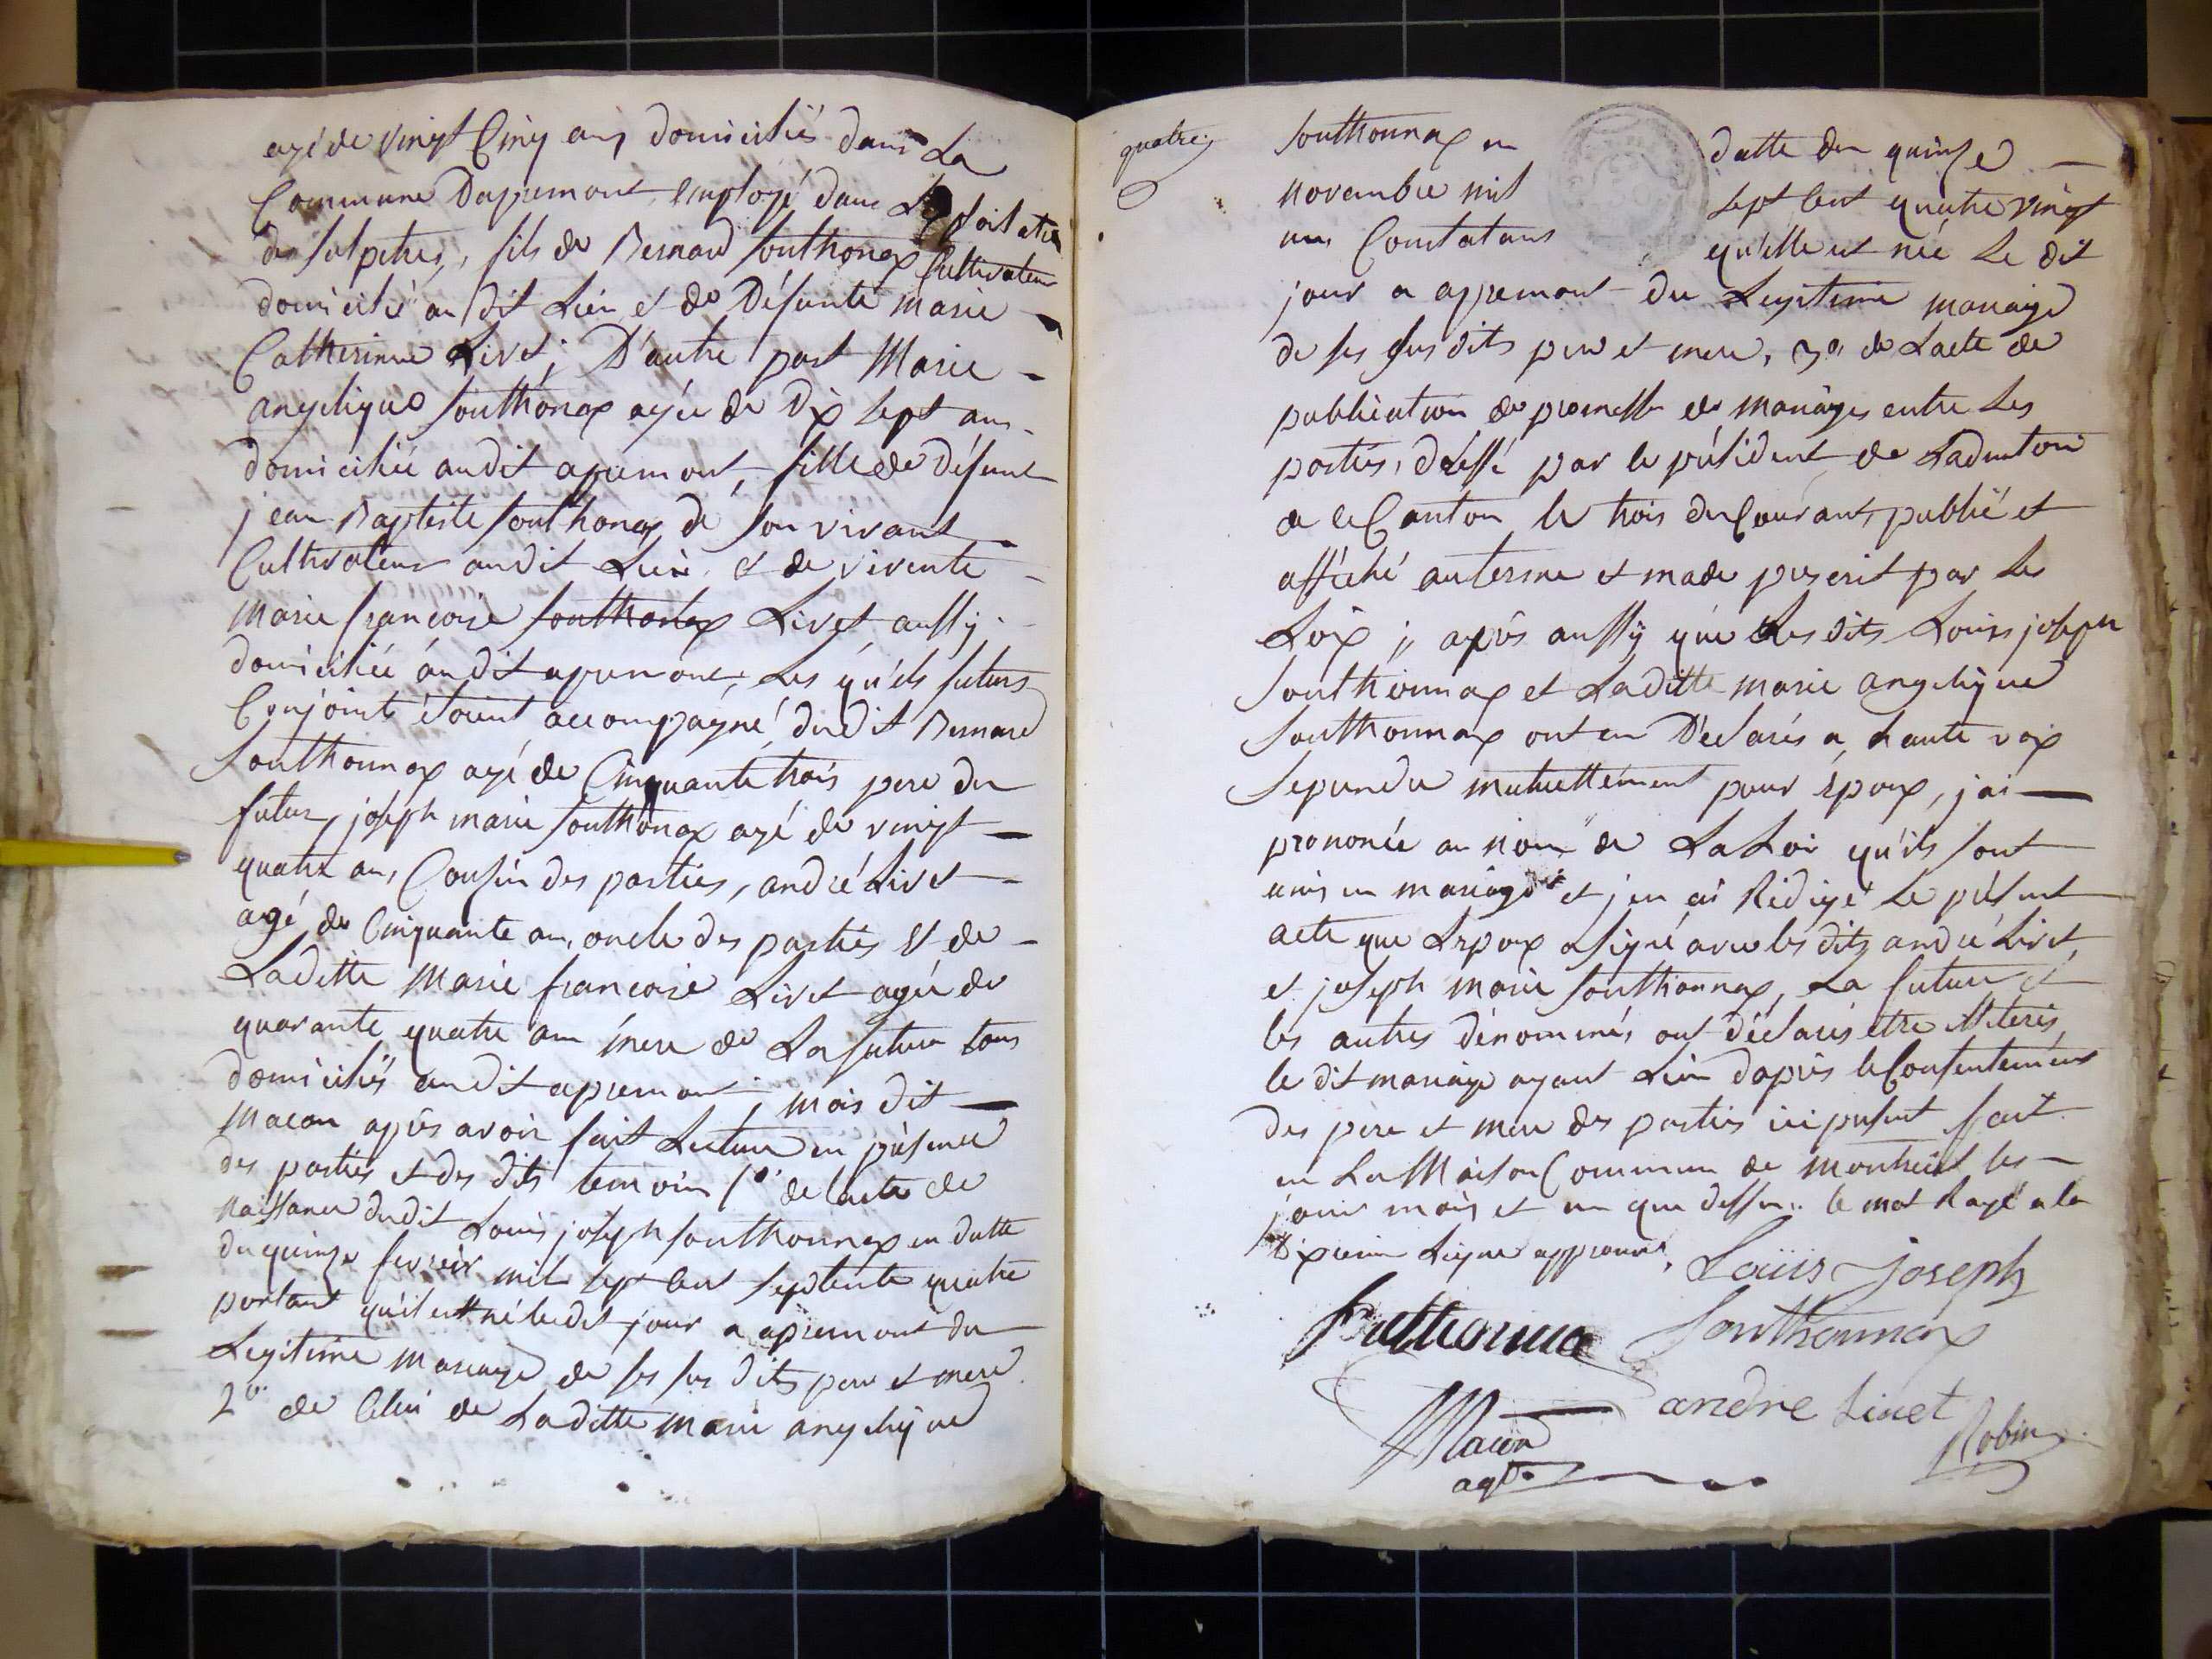 agé de vingt Cinq ans domiciliés dans La
Commune Dapremont, employé dans
de salpetres, fils de Bernard Southonax Cultivateur
domicilié au dit Lieu et de Défunte marie
Catherinne Livet; D'autre part Marie
angelique Southonax agée de Dix Sept ans
domiciliée audit apremont, fille de Défunt
jean Baptiste Southonax de son vivant
Cultivateur audit Lieu et de vivente
marie francoise Southonax Livet aussÿ
domiciliée audit apremont, Les qu'els futurs
Conjoints étoient accompagné dudit Bernard
Southonnax agé de Cinquante trois pere du
futur, joseph marie Southonax agé de vingt
quatre an, Cousin des parties, andré Livet
agé de Cinquante an, oncle des parties et de
Laditte Marie francoise Livet agée de
quarante quatre an mere de La future tous
domiciliés audit apremont, mois dit
Macon après avoir fait Lecture en présence
des parties et des dits temoin 1° de lacte de
naissance dudit Louis joseph Southonnax en datte
du quinze fevrier mil sept cent septente quatre
portant qu'il est né ledit jour a apremont du
Legitime mariage de ses sus dits pere et mere
2° de Celui de Laditte marie angelique
quatre
Southonnax en datte du quinze
novembre mil sept cent quatre vingt
un Constatant qu'elle est née Le dit
jour a apremont du Legitime mariage
de ses sus dits pere et mere, 3° de Lacte de
publication de promesse de mariages entre Les
parties, dréssé par le président de Ladmtoin
de ce Canton le trois du Courant, publié et
affiché au terme et mode prescrit par Les
Loix; après aussÿ que Les dits Louis joseph
Southonnax et Laditte marie angelique
Southonnax ont eu Déclarés a haute voix
Seprendre mutuettement pour époux, jai
prononcée au nom de La Loi qu'ils sont
unis en mariage et jen ai Rédigé Le présent
acte que Lepoux a signé avec les dits andré Livet
et joseph marie Southonnax, La future et
les autres dénommés ont déclarés etre illiterés
le dit mariage ayant Lieu d'après le Consentement
des pere et mere des parties ici présent fait
en La Maison Commun de les
jour mois et an que dessus. le mot Rayé a la
dixieme Ligne approuvé. Louis joseph
Southonnax Southonnax
andre Livet
Macon Robin
agt